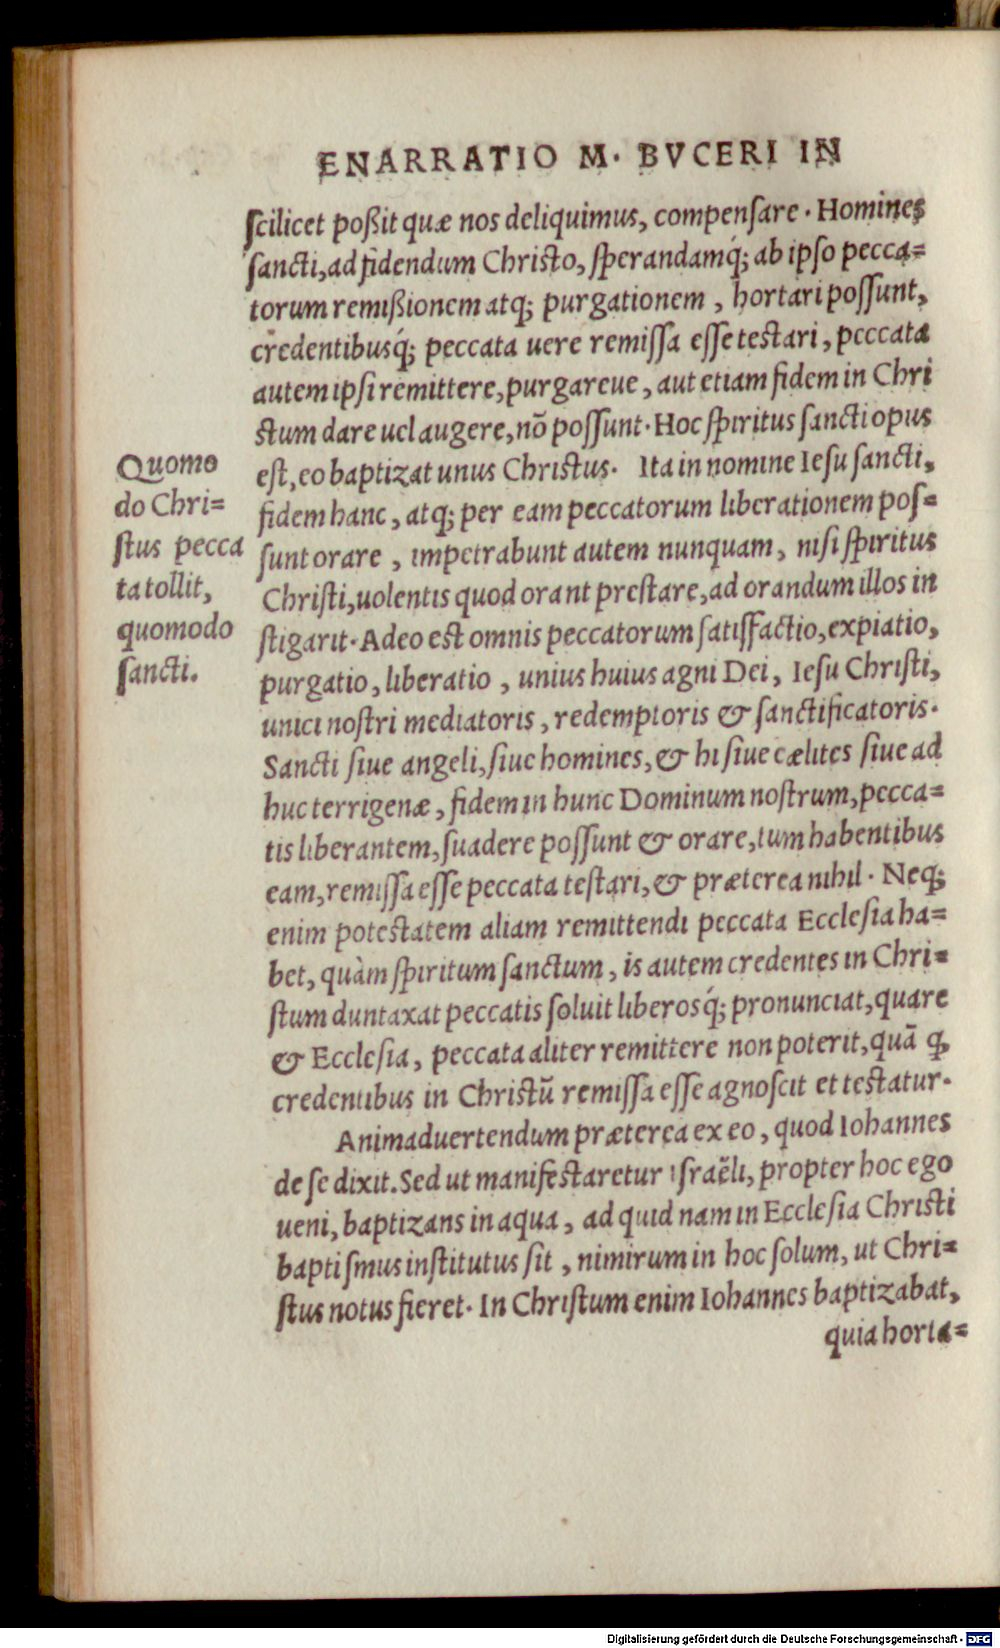 ENARRATIO M. BVCERI IN
ſcilicet poßit quæ nos deliquimus, compenſare. Homines
ſancti, ad fidendum Chriſto, ſperandamq́; ab ipſo pecca=
torum remißionem atq; purgationem, hortari poſſunt,
credentibusq́; peccata uere remiſſa eſſe teſtari, peccata
autem ipſi remittere, purgareue, aut etiam fidem in Chri
ſtum dare uel augere, nõ poſſunt. Hoc ſpiritus ſancti opus
eſt, eo baptizat unus Chriſtus. Ita in nomine Ieſu ſancti,
fidem hanc, atq; per eam peccatorum liberationem poſ=
ſunt orare, impetrabunt autem nunquam, niſi ſpiritus
Chriſti, uolentis quod orant preſtare, ad orandum illos in
ſtigarit. Adeo eſt omnis peccatorum ſatiſfactio, expiatio,
purgatio, liberatio, unius huius agni Dei, Ieſu Chriſti,
unici noſtri mediatoris, redemptoris & ſanctificatoris.
Sancti ſiue angeli, ſiue homines, & hi ſiue cælites ſiue ad
huc terrigenæ, fidem in hunc Dominum noſtrum, pecca=
tis liberantem, ſuadere poſſunt & orare, tum habentibus
eam, remiſſa eſſe peccata teſtari, & præterea nihil. Neq;
enim poteſtatem aliam remittendi peccata Eccleſia ha=
bet, quàm ſpiritum ſanctum, is autem credentes in Chri=
ſtum duntaxat peccatis ſoluit liberosq́; pronunciat, quare
& Eccleſia, peccata aliter remittere non poterit, quã q,
credentibus in Chriſtũ remiſſa eſſe agnoſcit et teſtatur.
Animaduertendum præterea ex eo, quod Iohannes
de ſe dixit. Sed ut manifeſtaretur Iſraẽli, propter hoc ego
ueni, baptizans in aqua, ad quid nam in Eccleſia Chriſti
baptiſmus inſtitutus ſit, nimirum in hoc ſolum, ut Chri=
ſtus notus fieret. In Chriſtum enim Iohannes baptizabat,
quia horta=
Quomo
do Chri=
ſtus pecca
ta tollit,
quomodo
ſancti.
Digitalisierung gefördert durch die Deutsche Forschungsgemeinschaft - DFG